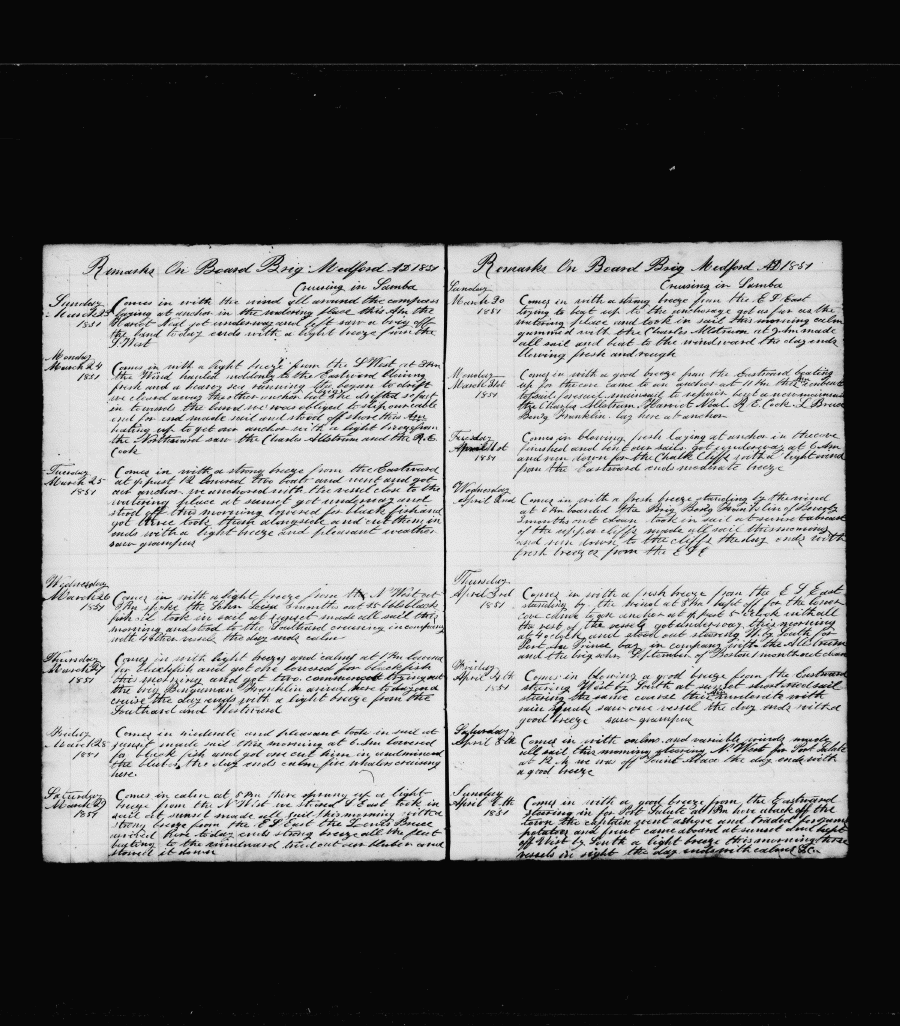 Remarks On Board Brig Medford AD 1851
Cruising in Samba
Sunday Comes in with the wind all around the compass
March 23 laying at anchor in the watering place this Am the
1851 Harriot Neal got underway and left saw a brig off
the land today ends with a light breeze from the
S West
Monday
March 24 Comes in with a light breeze from the S West at 3 Am
1851 the Wind hauled suddenly to the Eastward blowing
fresh and a heavy sea running She began to drift
we cleared away the other anchor but She drifted so fast
in towards the land we was obliged to slip our cable
and for end made sail and stood off shore this Am
beating up to get our anchor with a light breeze from
the Northward saw the Charles Allstrum and the R. E.
Cook
Tuesday Comes in with a strong breeze from the Eastward
March 25 at ½ past 12 lowered two boats and went and got
1851 our anchor we anchored with the vessel close to the
watering place at sunset got underway and
stood off this morning lowered for black fish and
got three took them alongside and cut them in
ends with a light breeze and pleasant weather
saw grampus
Wednesday
March 26 Comes in with a light breeze from the N West at
1851 Pm spoke the John 5 months out 35 bbls black
fish oil took in sail at sunset made all sail this
morning and stood to the Southard cruising in company
with 4 other vessels the day ends calm
Thursday Comes in with light breezes and calms at 1 Pm lowered
March 27 for blackfish and got one lowered for blackfish
1851 this morning and got two commenced trying out
the brig Bingeman Franklin arived here to day and
cruise the day ends with a light breeze from the
Southard and Westward
Friday Comes in moderate and pleasant took in sail at
March 28 sunset made sail this morning at 6 Am lowered
1851 for black fish and got one cut him in and minced
the blubber the day ends calm five whalers cruising
here.
Saturday Comes in calm at 5 Pm there sprung up a light
March 29 breeze from the N West we steered S East took in
1851 sail at sunset made all sail this morning with a
strong breeze from the E S East the Lewis Bruce
arived here to day ends strong breeze all the fleet
beating to the windward tried out our blubber and
stowed it down
Remarks On Board Brig Medford AD 1851
Cruising in Samba
Sunday
March 30 Comes in with a strong breeze from the E S East
1851 trying to beat up to the anchorage got as far as the
watering place and took in sail this morning calm
gammed with the Charles Allstrum at 9 Am made
all sail and beat to the windward the day ends
blowing fresh and rough
Monday Comes in with a good breeze from the Eastward beating
March 31st up for the cove came to an anchor at 11 Am this
1851 to sail bent a new mainsail
the Charles Allstrum Harriot Neal R. E. Cook L Bruce
Benj Franklin lay here at anchor
Tuesday Comes in blowing fresh laying at anchor in the cove
April 1st finished and bent our sails got underway at 6 Am
1851 and run down for the Chalk Cliffs with a light wind
from the Eastward ends moderate breeze
Wednesday
April 2nd Comes in with a fresh breeze standing by the wind
at 6 Pm boarded the Brig Benj Franklin of Beverly
3 months out clean took in sail at sunset abreast
of the upper cliffs made all sail this morning
and run down to the cliffs the day ends with
fresh breezes from the E S E
Thursday
April 3rd Comes in with a fresh breeze from the E S East
1851 standing by the wind at 3 Pm kept off for the lower
cove came to an anchor at ½ past 5 o clock with all
the rest of the vessels got underway this morning
at 4 oclock and stood out stearing W by South for
Port Au Prince bay in company with the Allstrum
and the brig schr September of Boston 1 month out clean
Friday Comes in blowing a good breeze from the Eastward
April 4th stearing West by South at sunset shortened sail
1851 stearing the same course this moderate with
rain squals saw one vessel the day ends with a
good breeze saw grampus
Saturday
April 5th Comes in with calms and variable winds made
all sail this morning stearing N. West for Port Salute
at 12 M we was off Point Abaca the day ends with
a good breeze
Sunday
April 6th Comes in with a good breeze from the Eastward
1851 stearing in for Port Salute at Pm hove aback off the
town the captain went ashore and traded for some
potatoes and fruit came aboard at sunset and kept
off West by South a light breeze this morning three
vessels in sight the day ends with calms &c.